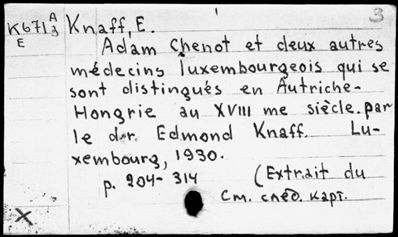 3
K671 A/3 Knaff, E.
E
Adam Chenot et deux autres
médecins luxembourgeois qui se
sont distingués en Autriche-
Hongrie au XVIII me siècle. par
le dr. Edmond Knaff. Lu-
xembourg, 1930.
p. 204-314 (Extrait du
См. след. карт.
X